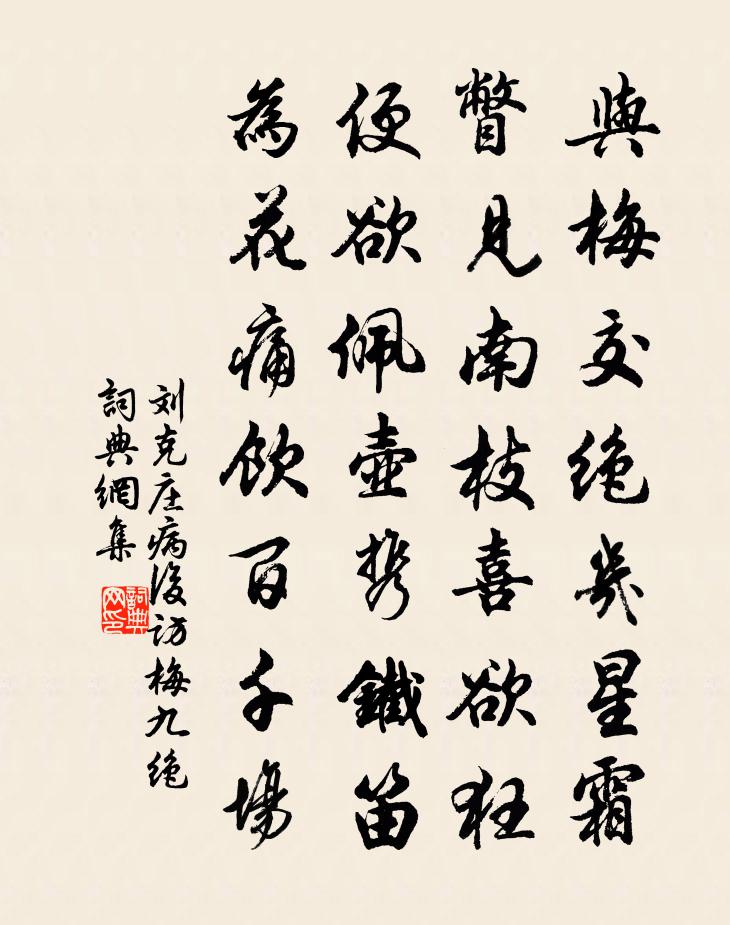 與梅交絶幾星霜
瞥見南枝喜欲狂
便欲佩壺携鐵笛
為花痛飲百千場
刘克庄病後访梅九絶
詞典網集
詞典
网印